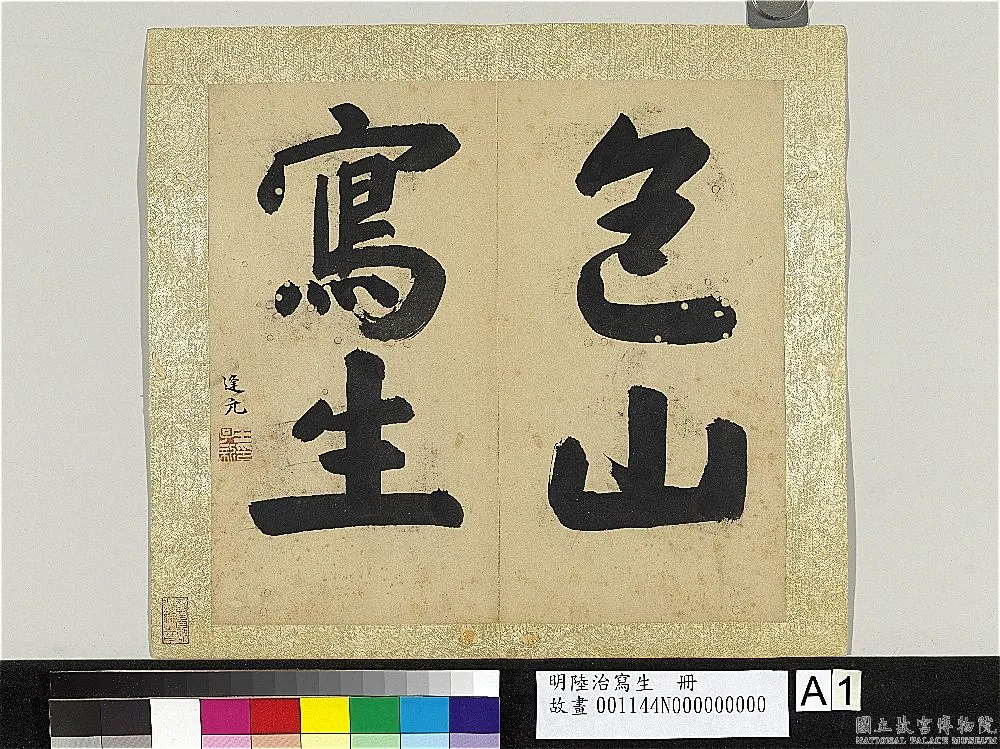 包山
寫生
逢元
明陸治寫生 冊
故畫 001144N000000000
A1
國立故宮博物院
NATIONAL PALACE MUSEUM